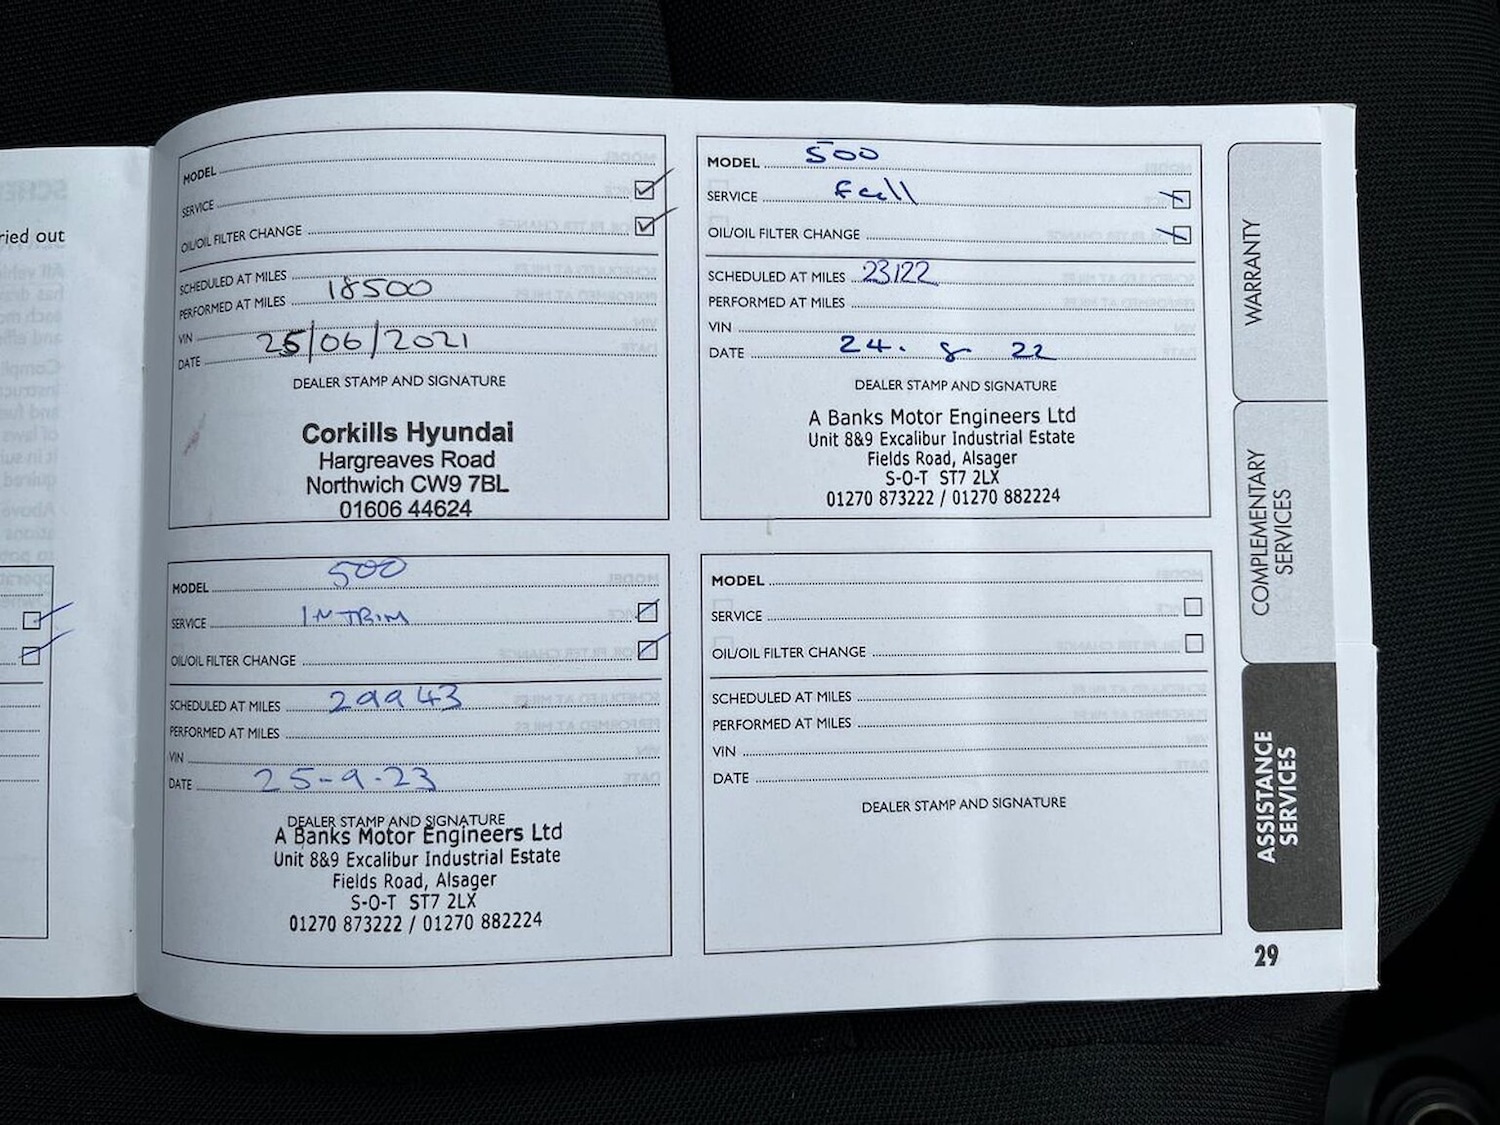 ried out
MODEL
SERVICE
OIL/OIL FILTER CHANGE
SCHEDULED AT MILES
PERFORMED AT MILES 18500
VIN
DATE 25/06/2021
DEALER STAMP AND SIGNATURE
Corkills Hyundai
Hargreaves Road
Northwich CW9 7BL
01606 44624
MODEL 500
SERVICE Full
OIL/OIL FILTER CHANGE
SCHEDULED AT MILES 23122
PERFORMED AT MILES
VIN
DATE 24. 8 22
DEALER STAMP AND SIGNATURE
A Banks Motor Engineers Ltd
Unit 8&9 Excalibur Industrial Estate
Fields Road, Alsager
S-O-T ST7 2LX
01270 873222 / 01270 882224
MODEL 500
SERVICE INTRIM
OIL/OIL FILTER CHANGE
SCHEDULED AT MILES 29943
PERFORMED AT MILES
VIN
DATE 25-9-23
DEALER STAMP AND SIGNATURE
A Banks Motor Engineers Ltd
Unit 8&9 Excalibur Industrial Estate
Fields Road, Alsager
S-O-T ST7 2LX
01270 873222 / 01270 882224
MODEL
SERVICE
OIL/OIL FILTER CHANGE
SCHEDULED AT MILES
PERFORMED AT MILES
VIN
DATE
DEALER STAMP AND SIGNATURE
WARRANTY
COMPLEMENTARY
SERVICES
ASSISTANCE
SERVICES
29